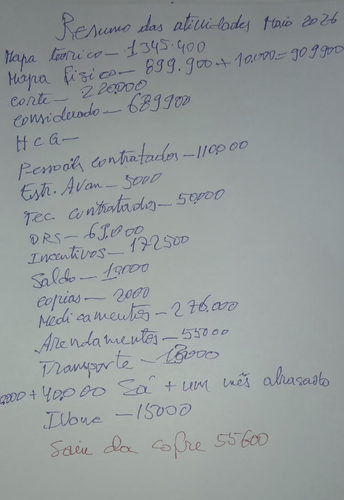 Resumo das atividades Maio 2026
Mapa teórico - 1345.400
Mapa físico - 899.900 + 10.000 = 909900
corte - 220.000
considerado - 689900
H c G -
Pessoais contratados - 110000
Estr. Avan - 5000
Tec contratados - 50000
DRS - 61000
Incentivos - 172500
Saldo - 10000
copias - 2000
Medicamentos - 276.000
Arendamentos - 55000
Transporte -
+ 40000 Sá + um mês atrasado
Ivone - 15000
Saiu da cofre 55600